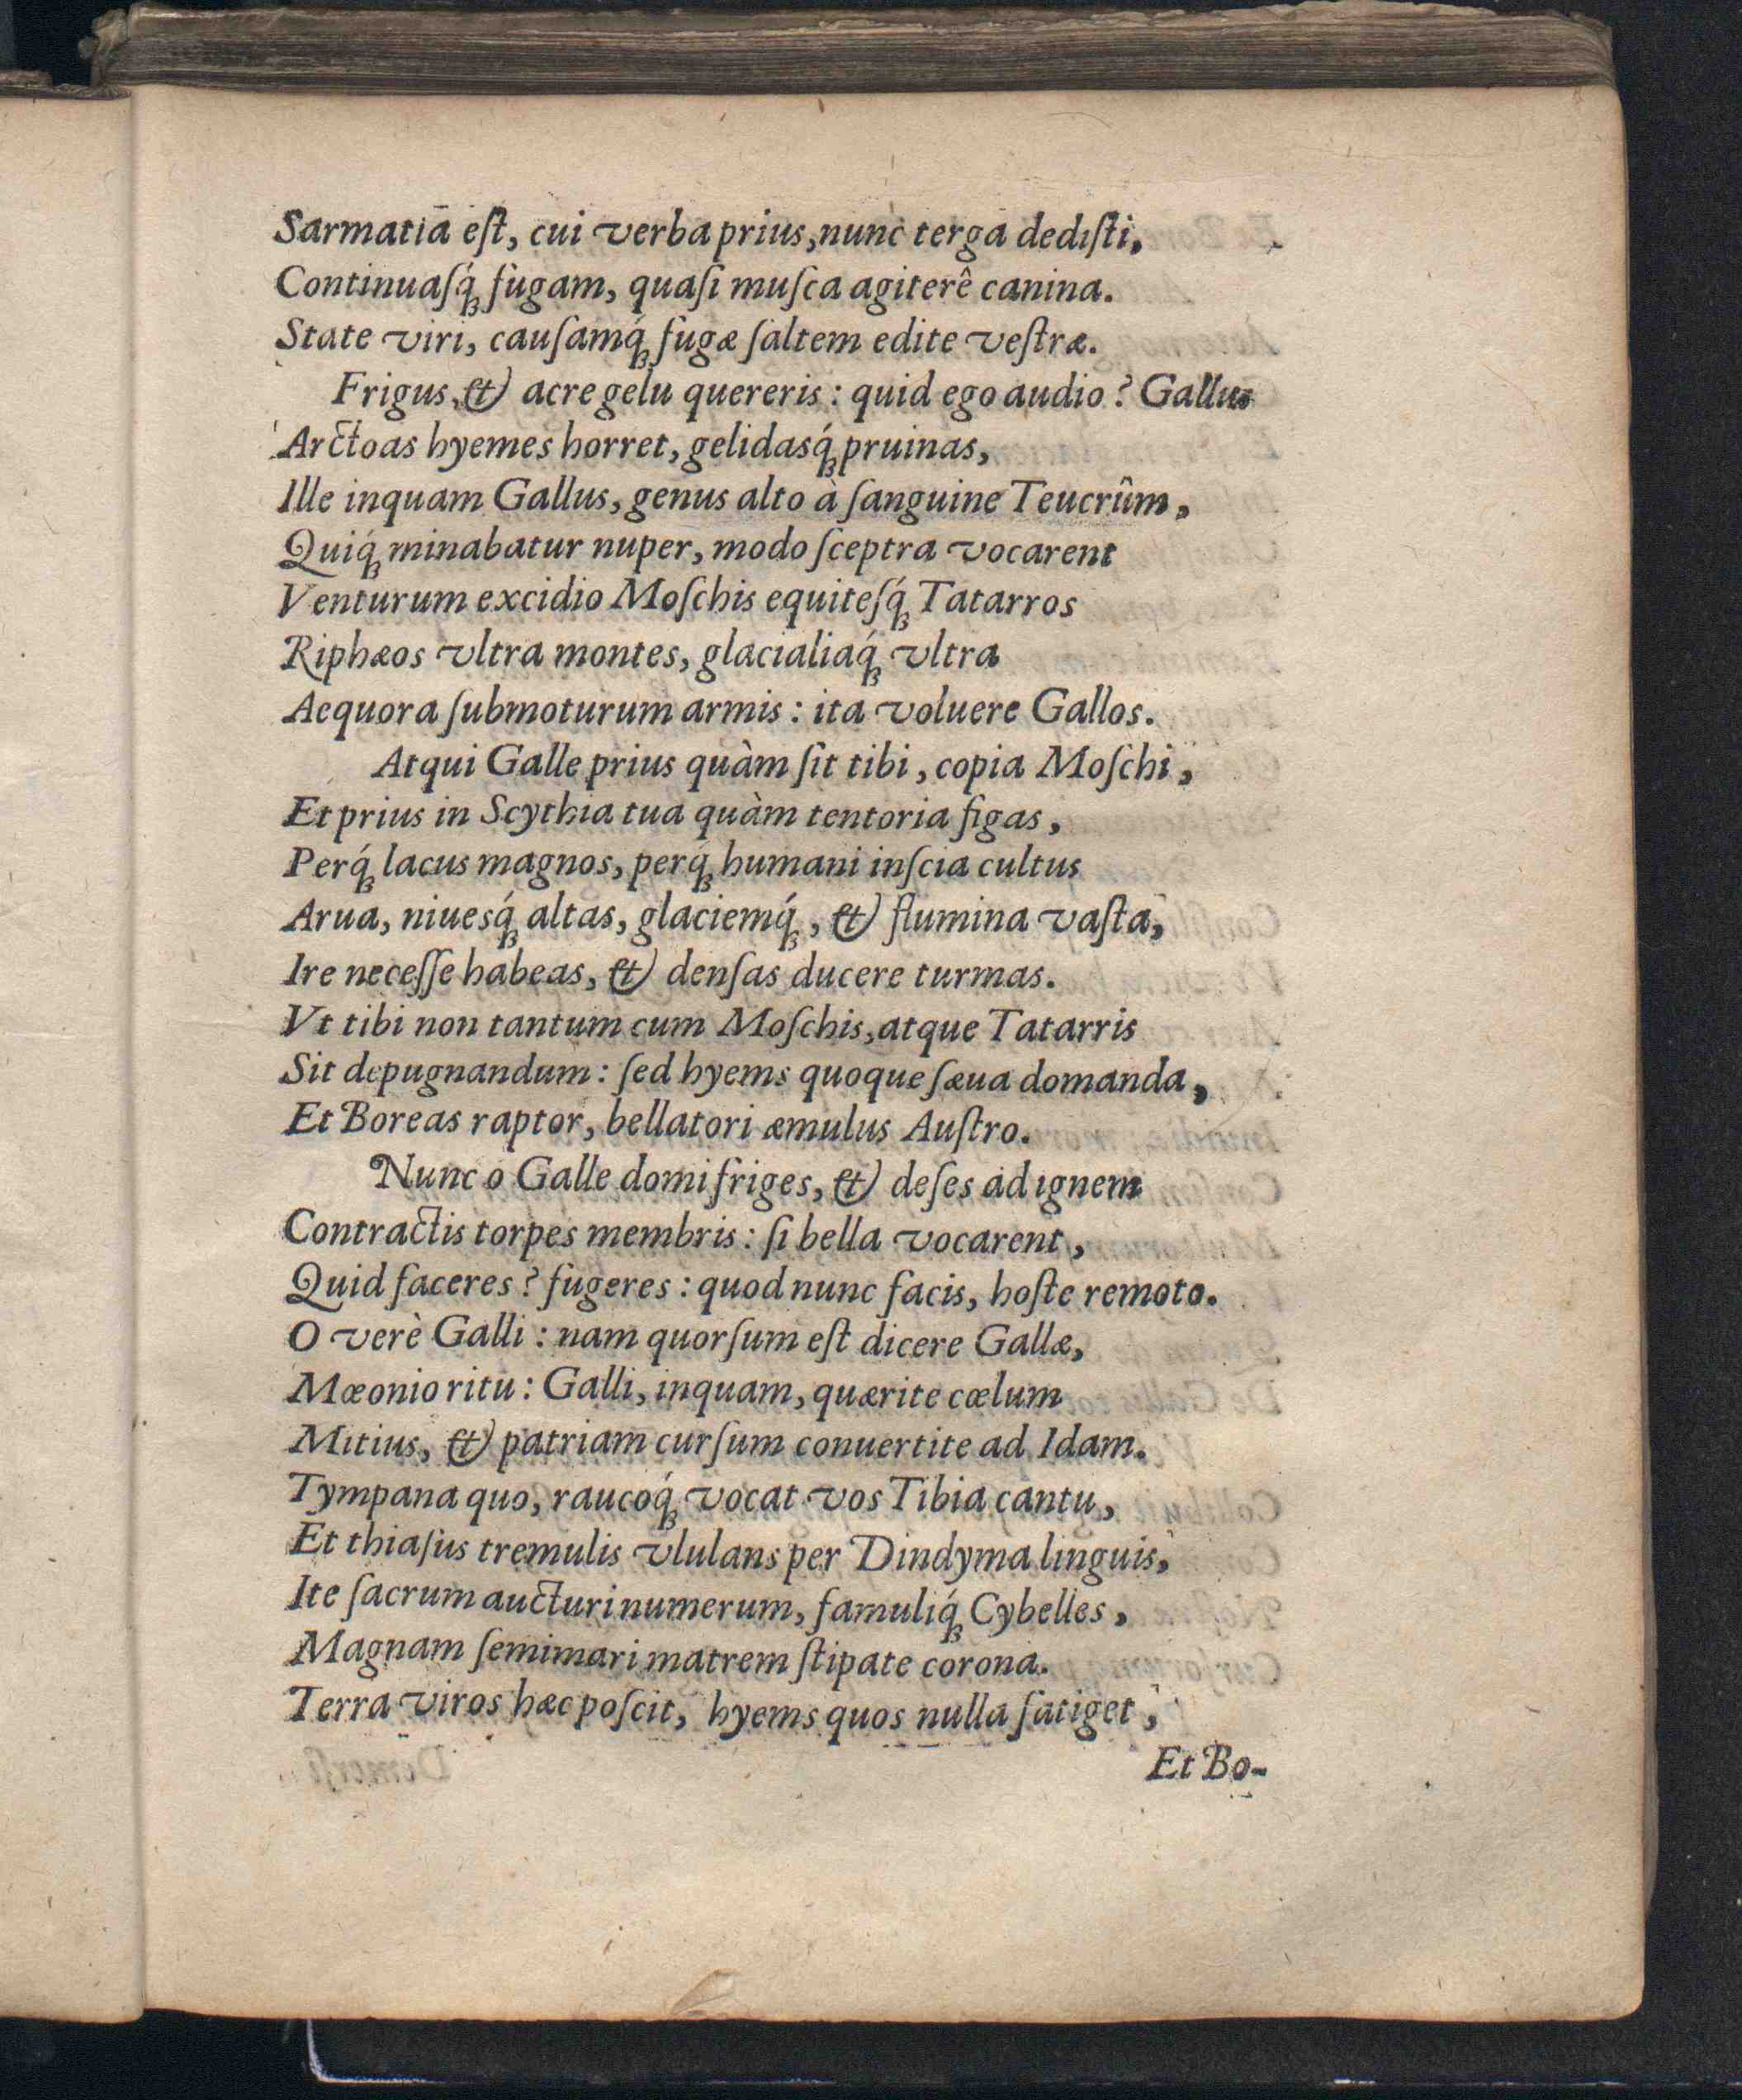 Sarmatia est, cui verba prius, nunc terga dedisti,
Continuasq́; fugam, quasi musca agiterê canina.
State viri, causamq́; fugæ saltem edite vestræ.
Frigus, & acre gelu quereris: quid ego audio? Gallus
Arctoas hyemes horret, gelidasq́; pruinas,
Ille inquam Gallus, genus alto à sanguine Teucrûm,
Quiq́; minabatur nuper, modo sceptra vocarent
Venturum excidio Moschis equitesq́; Tatarros
Riphæos vltra montes, glacialiaq́; vltra
Aequora submoturum armis: ita voluere Gallos.
Atqui Galle prius quàm sit tibi, copia Moschi,
Et prius in Scythia tua quàm tentoria figas,
Perq́; lacus magnos, perq́; humani inscia cultus
Arua, niuesq́; altas, glaciemq́;, & flumina vasta,
Ire necesse habeas, & densas ducere turmas.
Vt tibi non tantum cum Moschis, atque Tatarris
Sit depugnandum: sed hyems quoque sæua domanda,
Et Boreas raptor, bellatori æmulus Austro.
Nunc o Galle domi friges, & deses ad ignem
Contractis torpes membris: si bella vocarent,
Quid faceres? fugeres: quod nunc facis, hoste remoto.
O verè Galli: nam quorsum est dicere Gallæ,
Mæonio ritu: Galli, inquam, quærite cœlum
Mitius, & patriam cursum conuertite ad Idam.
Tympana quo, raucoq́; vocat vos Tibia cantu,
Et thiasus tremulis vlulans per Dindyma linguis,
Ite sacrum aucturi numerum, famuliq́; Cybelles,
Magnam semimari matrem stipate corona.
Terra viros hæc poscit, hyems quos nulla fatiget,
Et Bo-